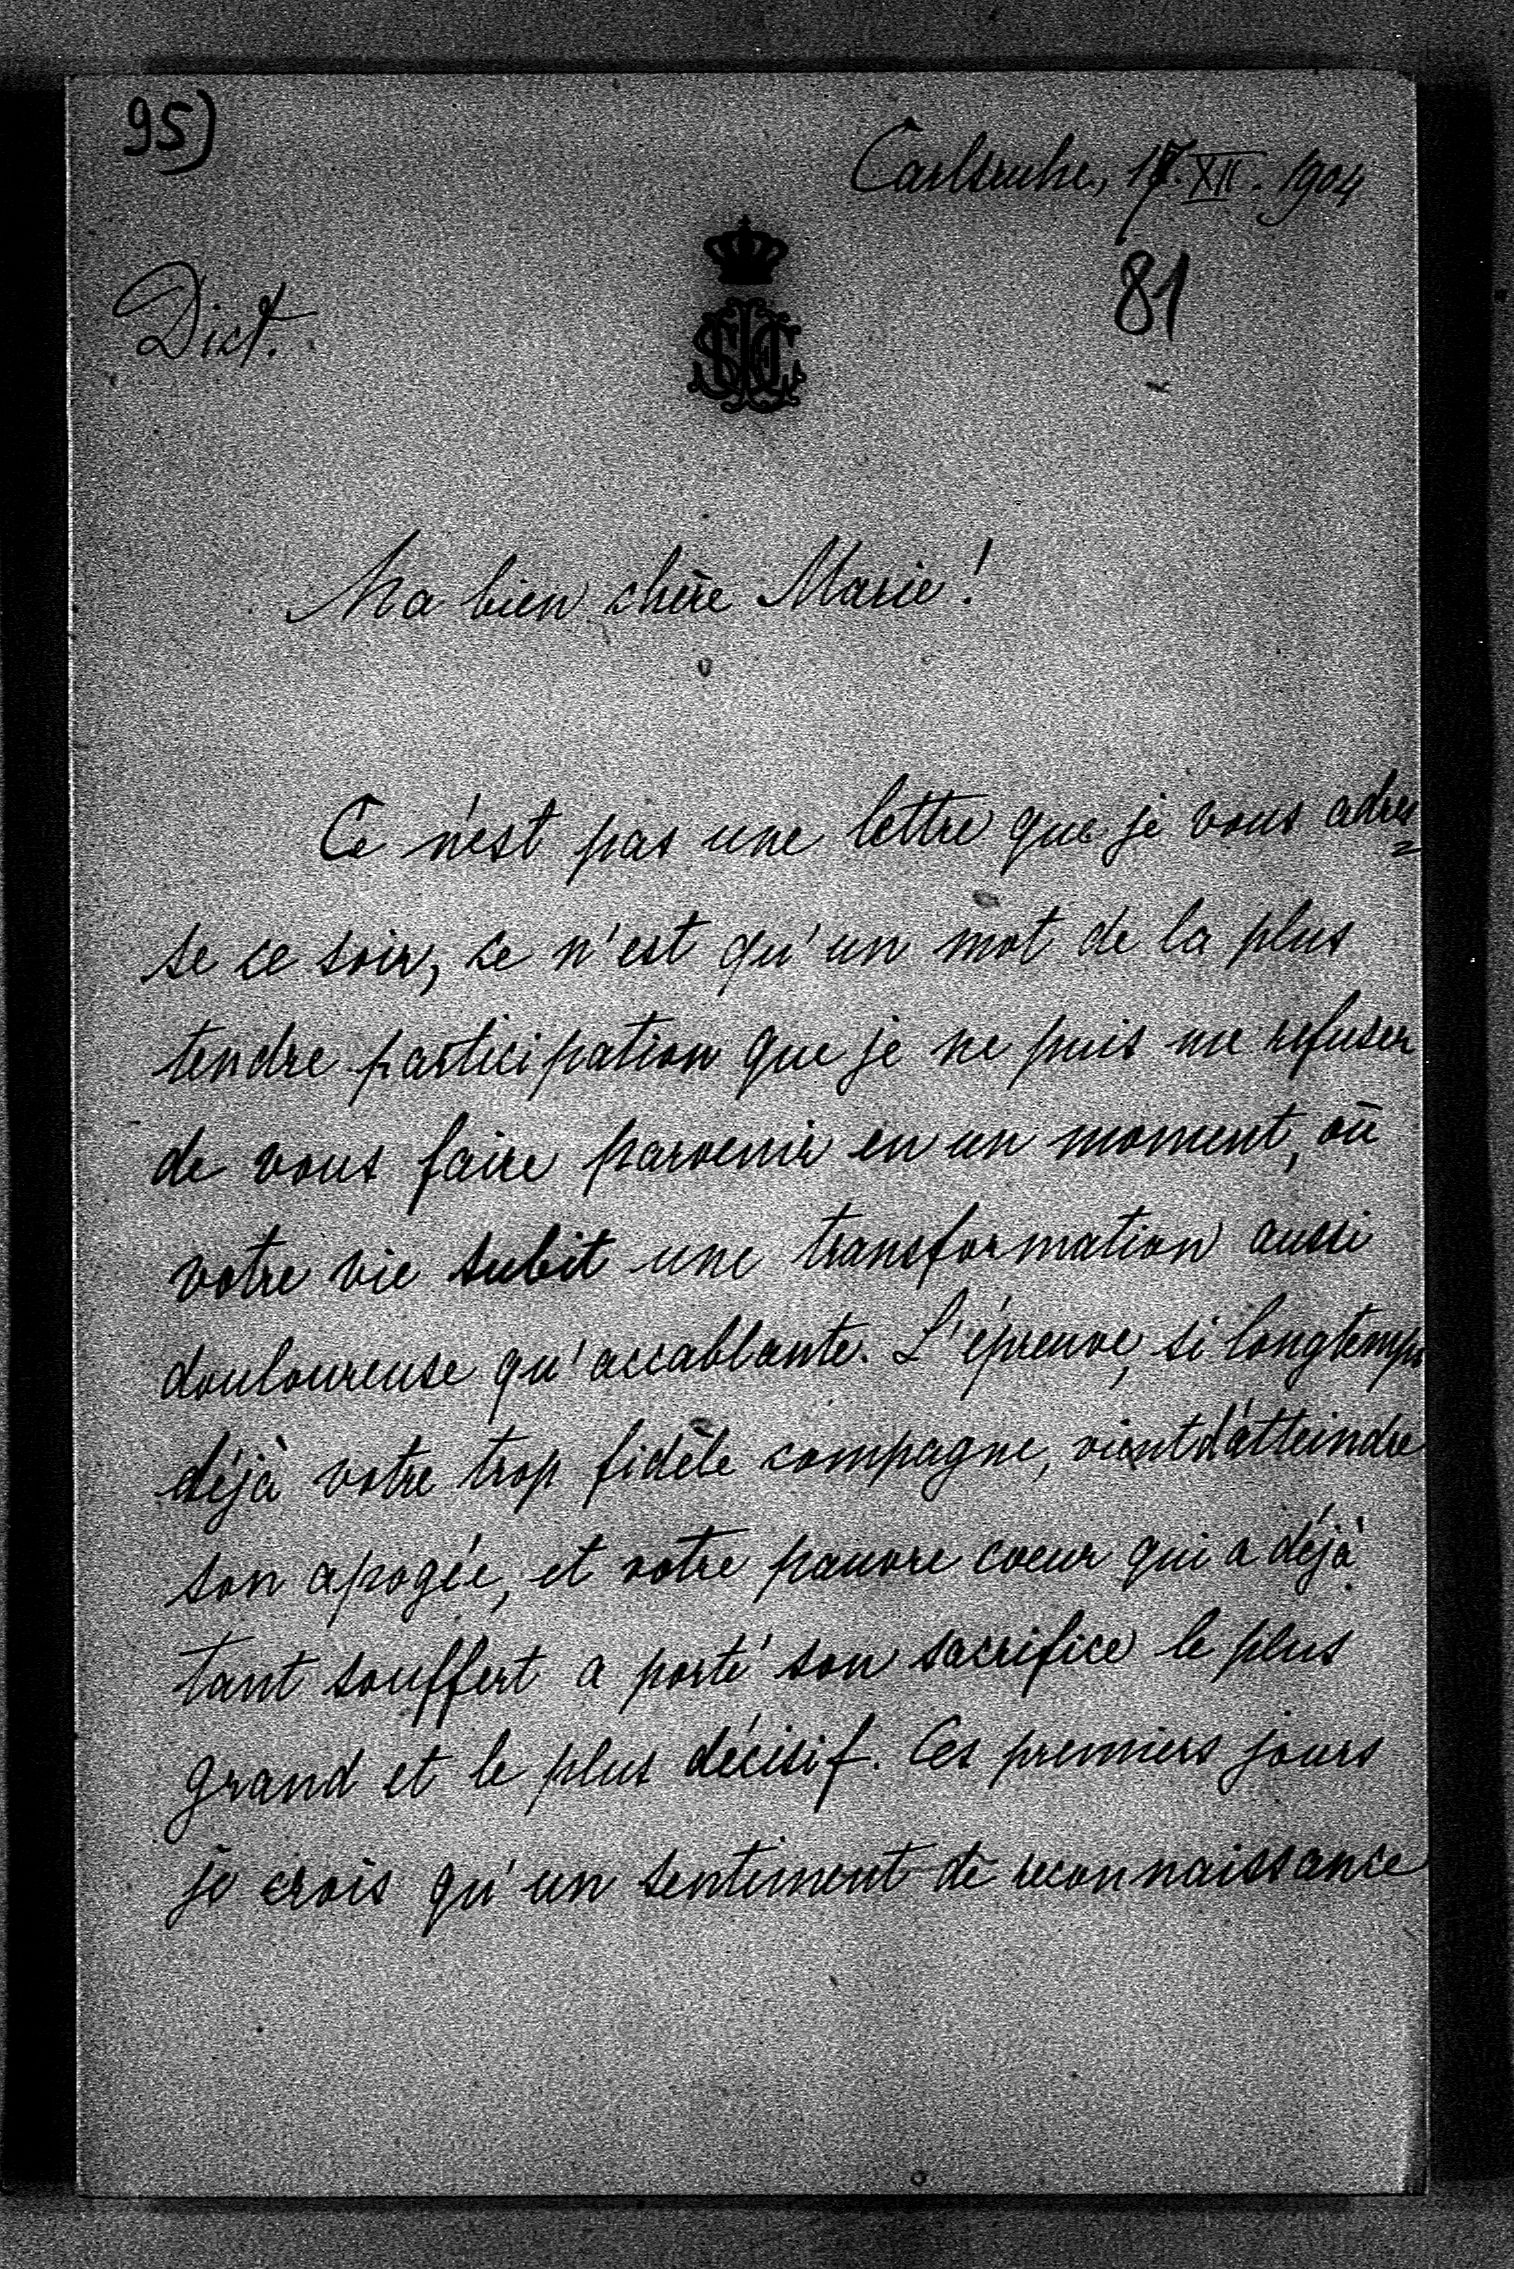 95)
Carlsruhe, 17. XII. 1904
81
Dict.
Ma bien chère Marie!
Ce n'est pas une lettre que je vous adres=
se ce soir, ce n'est qu'un mot de la plus
tendre participation que je ne puis me refuser
de vous faire parvenir en un moment, où
votre vie subit une transformation aussi
douloureuse qu'accablante. L'épreuve, si longtemps
déjà votre trop fidèle compagne, vient d'atteindre
son apogée, et votre pauvre coeur qui a déjà
tant souffert a porté son sacrifice le plus
grand et le plus décisif. Ces premiers jours
je crois qu'un sentiment de reconnaissance